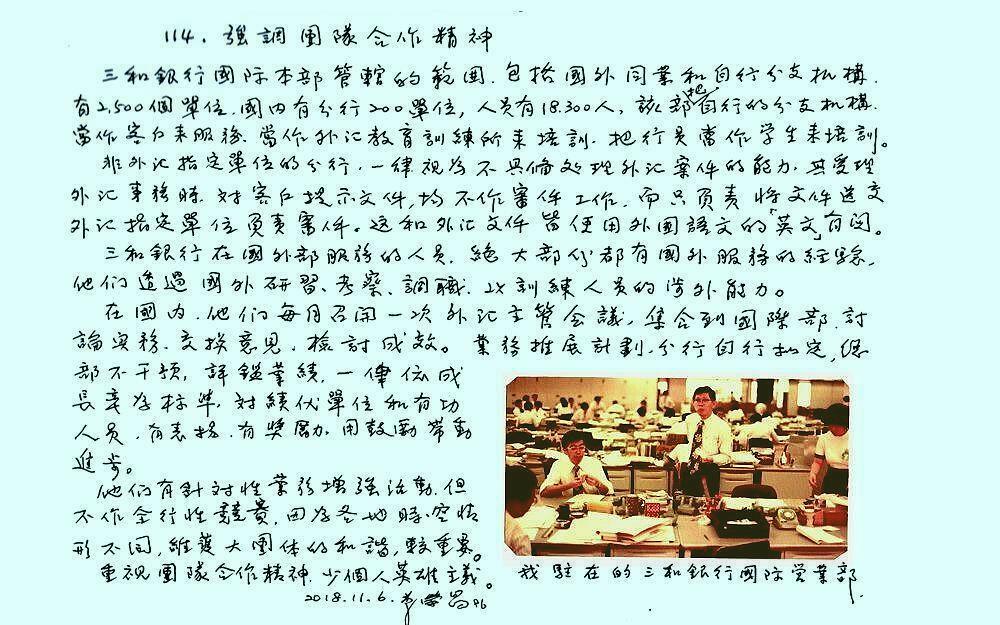 114. 強調團隊合作精神
三和銀行國际本部管轄的範囲,包括國外同業和自行分支机構.
有2,500個單位.國內有分行200單位,人員有18.300人,該部把自行的分支机構.
當作客户来服務.當作外汇教育訓練所来培訓.把行員當作学生来培訓。
非外汇指定單位的分行,一律視為不具俻处理外汇案件的能力.其受理
外汇事務時.对客户提示文件,均不作審件工作.而只負責將文件送交
外汇指定單位負責審件。这和外汇文件皆使用外國語文的「英文」有関。
三和銀行在國外部服務的人員.絶大部分都有國外服務的経驗,
他们透過國外研習、考察、調職.以訓練人員的涉外能力。
在國内.他们每月召開一次外汇主管会議,集合到國際部.討
論実務.交换意見.檢討成效。業務推展計劃.分行自行拟定,總
部不干預,評鑑業績,一律依成
長率为标準.对績优單位和有功
人員.有表扬.有獎勵.用鼓勵帶動
進步。
他们有針对性業務增強活動.但
不作全行性競賽,因为各地時.空情
形不同,維護大團体的和諧,較重要。
重視團隊合作精神.少個人英雄主義。
2018.11.6.
我駐在的三和銀行國际営業部.